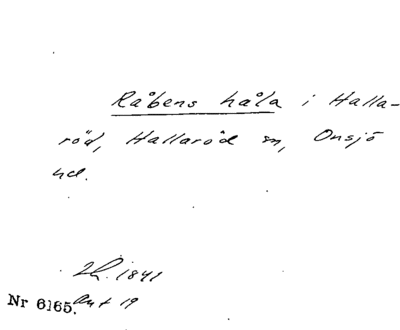 Råbens håla i Halla-
röd, Hallaröd sn, Onsjö
hd.
1841
Nr 6165. 19